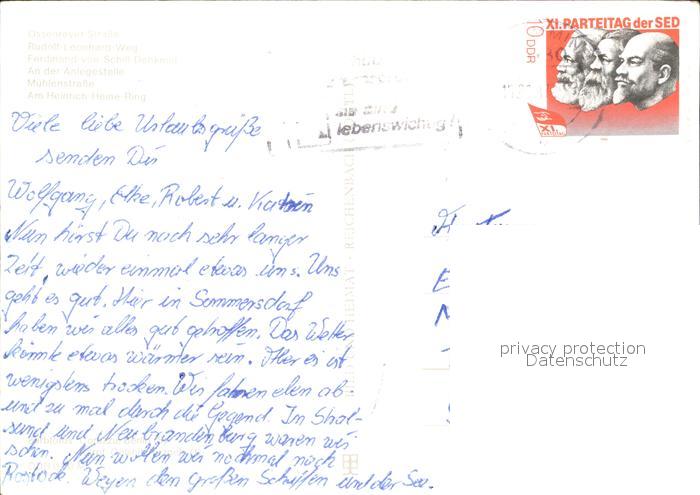 Ossenreyer-Straße
Rudolf-Leonhard-Weg
Ferdinand-von-Schill-Denkmal
An der Anlegestelle
Mühlenstraße
Am Heinrich-Heine-Ring
XI. PARTEITAG der SED
10 DDR
XI.
lebenswichtig!
Viele liebe Urlaubsgrüße
senden Dir
Wolfgang, Elke, Robert u. Katrin
Nun hörst Du nach sehr langer
Zeit, wieder einmal etwas uns. Uns
geht es gut. Hier in Sommersdorf
haben wir alles gut getroffen. Das Wetter
könnte etwas wärmer sein. Aber es ist
wenigstens trocken. Wir fahren eben ab
und zu mal durch die Gegend. In Stral-
sund und Neubrandenburg waren wir
schon. Nun wollen wir nochmal nach
Rostock. Wegen den großen Schiffen und der See.
privacy protection
Datenschutz